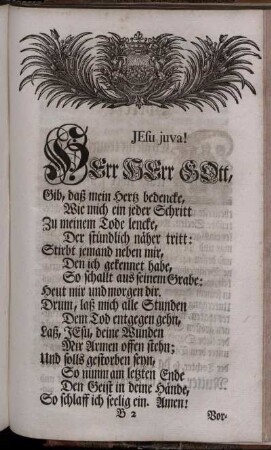 JEsu juva!
HErr HErr GOtt,
Gib, daß mein Hertz bedencke,
Wie mich ein jeder Schritt
Zu meinem Tode lencke,
Der stündlich näher tritt:
Stirbt jemand neben mir,
Den ich gekennet habe,
So schallt aus seinem Grabe:
Heut mir und morgen dir.
Drum, laß mich alle Stunden
Dem Tod entgegen gehn,
Laß, JEsu, deine Wunden
Mir Armen offen stehn;
Und solls gestorben seyn,
So nimm am letzten Ende
Den Geist in deine Hände,
So schlaff ich seelig ein. Amen!
B 2 Vor-